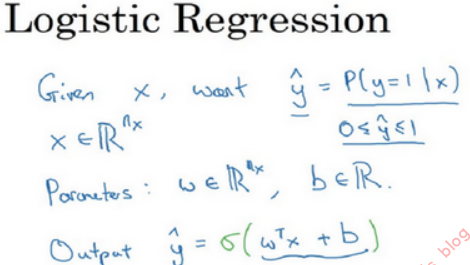 Logistic Regression
Given x, want ŷ = P(y=1|x)
x ∈ ℝⁿˣ
0 ≤ ŷ ≤ 1
Parameters: w ∈ ℝⁿˣ, b ∈ ℝ.
Output ŷ = σ(wᵀx + b)
blog